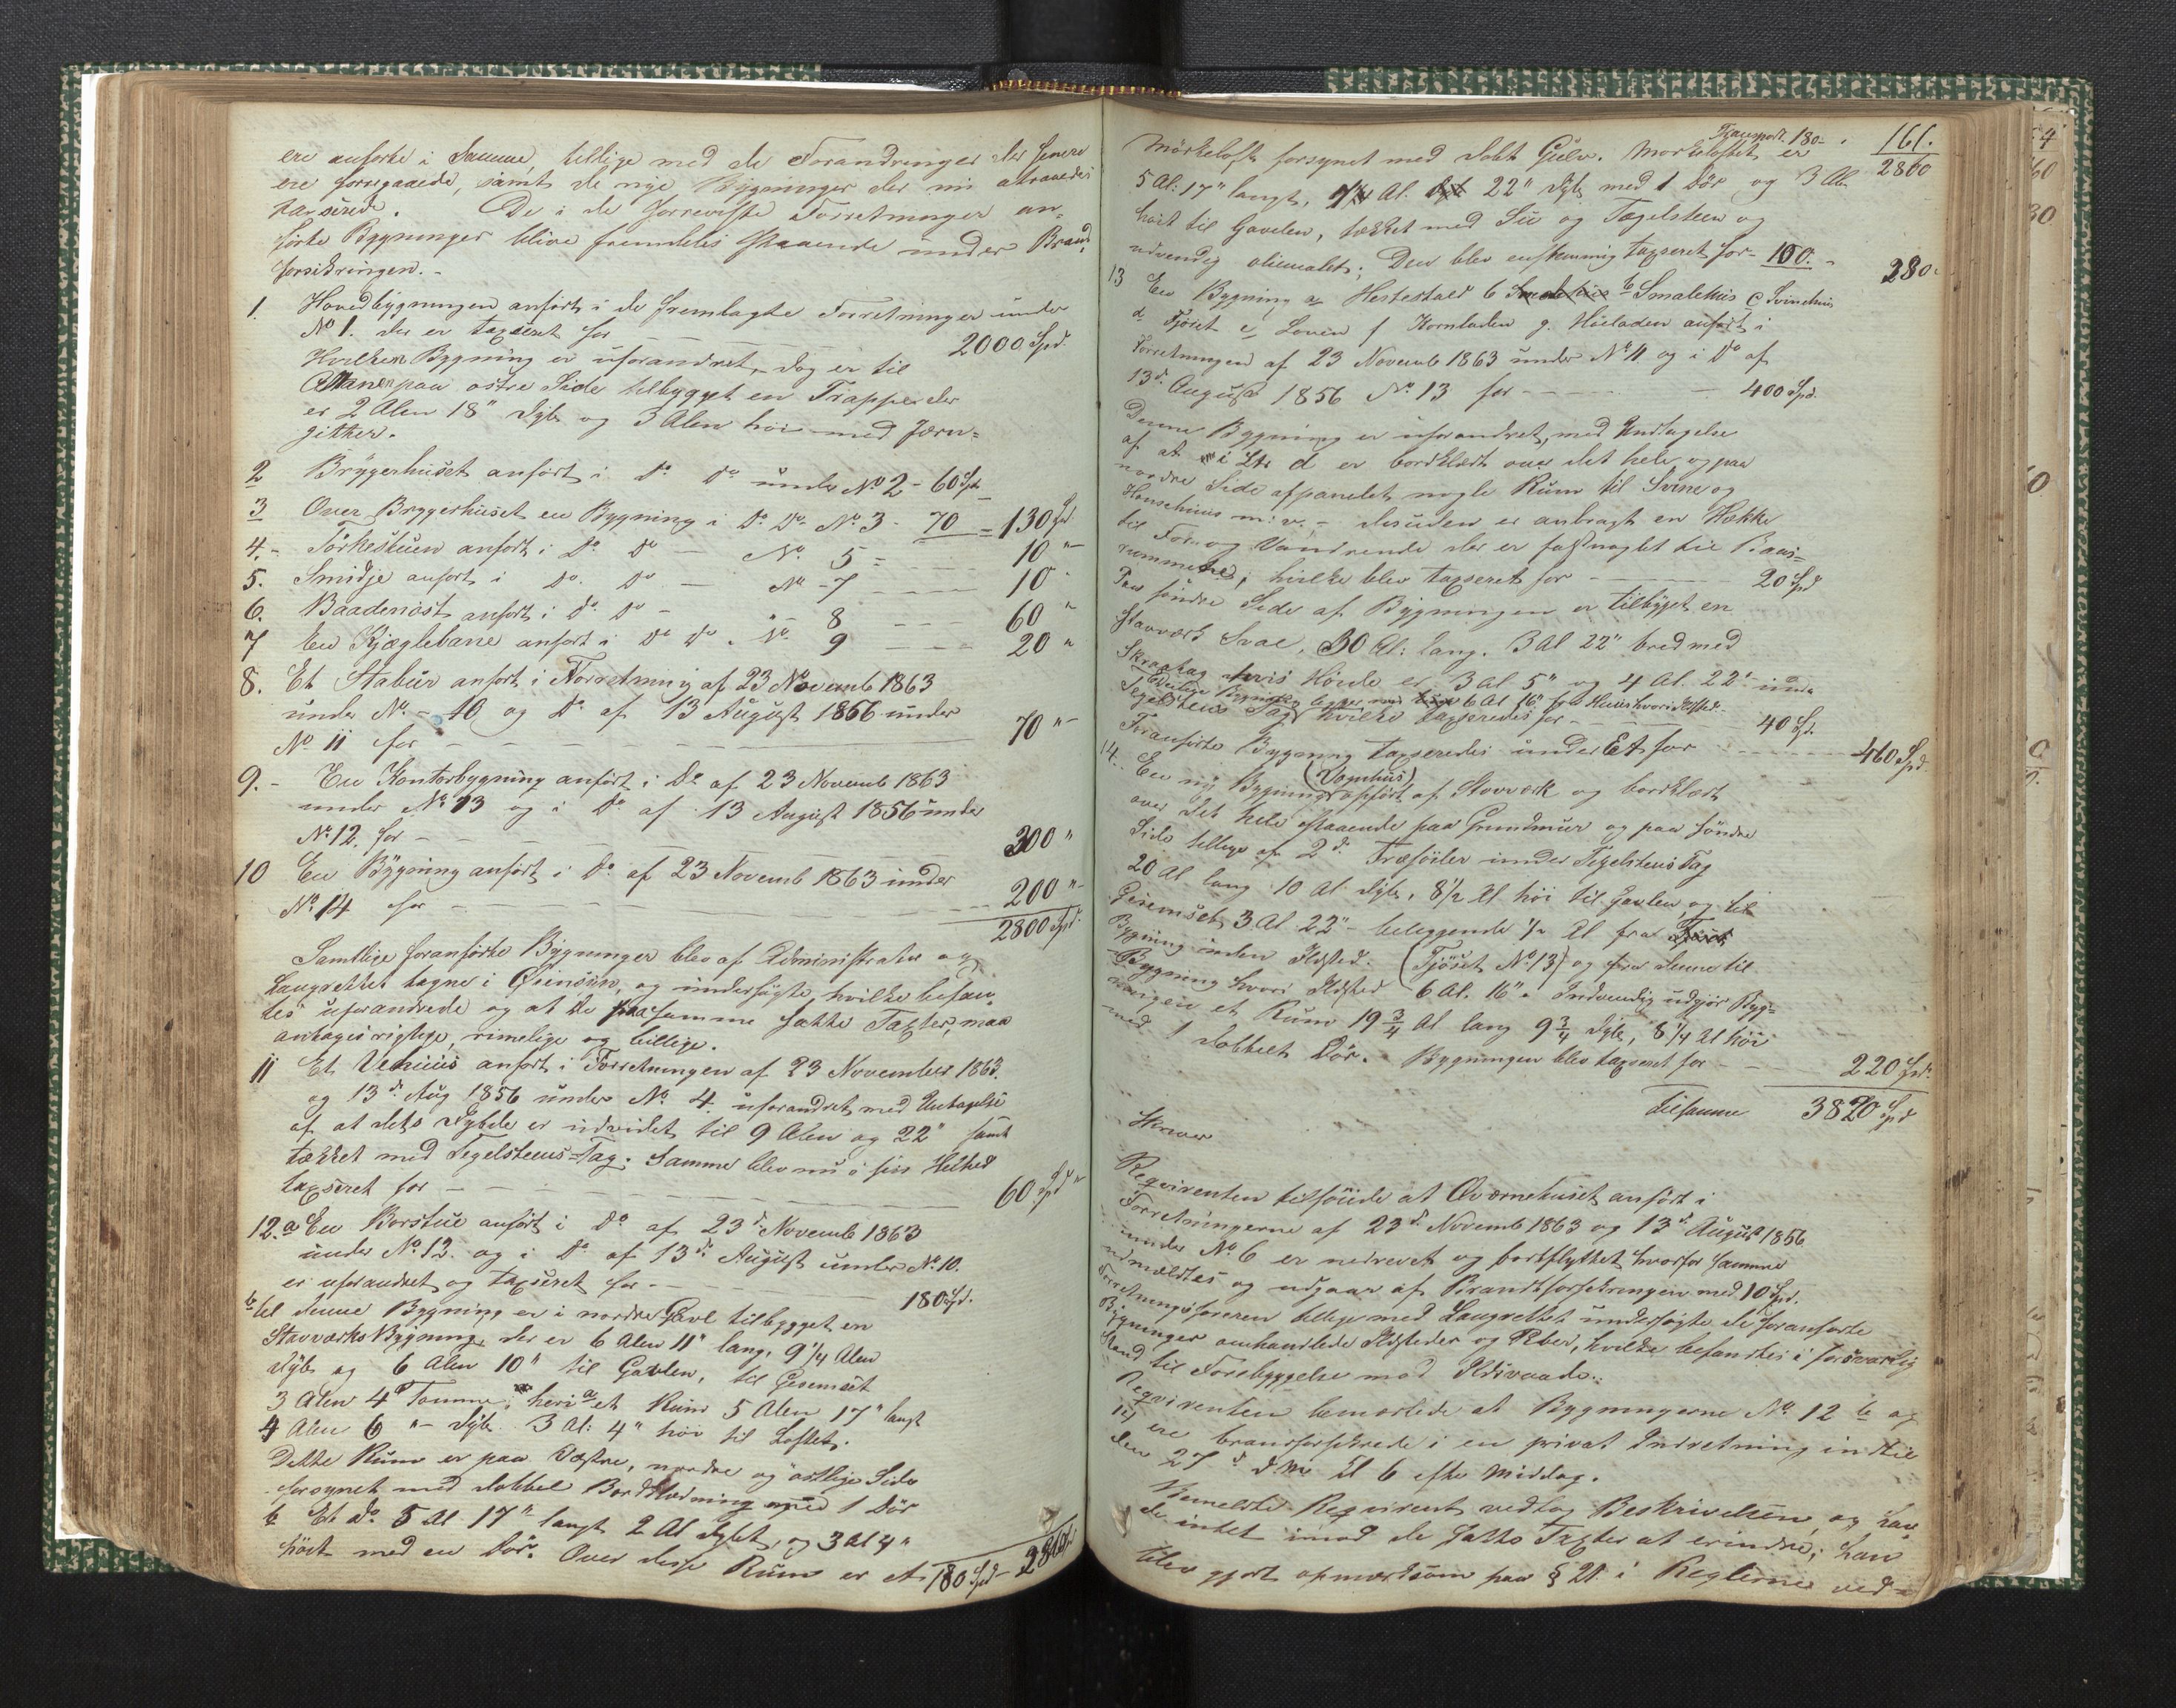 ere anførte i Samme, tillige med de Forandringer der senere
ere foregaaede, samt de nye Bygninger der nu
taxserede. De i de foreviste Forretninger an-
førte Bygninger blive fremdeles staaende under Brand-
forsikringen.-
1. Hovedbygningen anført i de fremlagte Forretninger under
No 1. der er taxseret for - - - 2000 Spd.
Hvilken Bygning er uforandret, - dog er til
Altanen paa østre Side tilbygget en Trappe der
er 2 Alen 18" dyb og 3 Alen høi med Jern-
gitter.
2 Bryggerhuset anført i Do Do under No 2 - 60 Spd
3 Over Bryggerhuset en Bygning i Do Do No 3 - 70 = 130 Spd
4.- Tørkestuen anført i Do Do - No 5 - - - 10 "
5. Smidje anført i Do. Do - No - 7 - - - 10 "
6. Baadenøst anført i Do Do - " - 8 - - - 60 "
7 En Kjæglebane anført i Do Do . No. 9 - - - 20 "
8. Et Stabur anført i Forretning af 23 Novemb 1863
under No - 10 og Do af 13 August 1856 under
No 11 for - - - 70 "
9. - En Kontorbygning anført i Do af 23 Novemb 1863
under No 13 og i Do af 13 August 1856 under
No 12. for - - - 300 "
10 En Bygning anført i Do af 23 Novemb 1863 under
No 14 for - - - 200 "
2800 Spd.
Samtlige foranførte Bygninger blev af Administrator og
Laugrettet tagne i Øiensyn, og undersøgte, hvilke befan-
tes uforandrede og at de paa samme satte Taxter, maa
antages rigtige, rimelige og billige.
11 Et Vehuus anført i Forretningen af 23 November 1863.
og 13de Aug 1856 under No 4. uforandret med Untagelse
af at dets Dybde er udvidet til 9 Alen og 22" samt
tækket med Tegelsteens-Tag. Samme blev nu i sin Helhed
taxseret for - - - 60 Spd "
12. a En Borstue anført i Do af 23de Novemb 1863
under No 12. og i Do af 13de August under No 10.
er uforandret og taxseret for - - - 180 Spd.
b til denne Bygning er i nordre Gavl tilbygget en
Stavværks Bygning, der er 6 Alen 11" lang, 9 1/4 Alen
dyb og 6 Alen 10" til Gavlen, til Gesemset
3 Alen 4 Tomme; heri a et Rum 5 Alen 17" langt
4 Alen 6 " dyb 3 Al: 4" høi til Loftet.
Dette Rum er paa vestre, nordre og østlige Side
forsynet med dobbel Bordklædning med 1 Dør
b Et Do. 5 Al 17" langt 2 Al dybt, og 3 Al 4"
høit med en Dør. Over disse Rum er et 180 Spd -
Transport. 180 - 161.
Mørkeloft forsynet med dobt Gulv. Mørkeloftet er 2800
5 Al: 17" langt, Al. 22" dyb med 1 Dør og 3 Al.
høit til Gavelen, tækket med Su og Tægelsteen og
udvendig oliemalet; Den blev enstemmig taxseret for - 100. - 280.
13 En Bygning a, Hestestald b Smalehus b Smalehus c Svinehus
d Fjøset e, Loven f Kornladen g. Høeladen anført i
Forretningen af 23 Novemb 1863 under No 11 og i Do af
13de August 1856 No 13 for - - - 400 Spd.
Denne Bygning er uforandret, med Undtagelse
af at i Ltr d er bordklædt over det hele og paa
nordre Side afpanelet nogle Rum til Svine og
Hønsehuus m: v. - desuden er anbragt en Hække
til Foer og Vandrende der er fastnaglet til Baas-
rummene; hvilke blev taxseret for - - - 20 Spd
Paa søndre Side af Bygningen er tilbygget en
Stavværk Sval, 30 Al: lang. 3 Al 22" bred med
Skraatag hvis Høide er 3 Al 5" og 4 Al. 22" under
Bygning ligger 6 Al 16" fra Huus hvori Ildsted.
Tegelsteens Tag hvilke taxseredes for - - - 40 Spd.
Foranførte Bygning taxseredes under Et for - - - 460 Spd.
(Vognhus)
14. En ny Bygning opført af Stavværk og bordklædt
over det hele staaende paa Grundmuur og paa søndre
Side tillige af 2de Træsøiler under Tegelsteens Tag
20 Al lang 10 Al dyb, 8 1/2 Al høi til Gavlen og til
Gesemset 3 Al 22" - beliggende 1/2 Al fra
Bygning uden Ildsted. (Fjöset No 13) og fra denne til
Bygning hvori Ildsted 6 Al. 16" - Indvendig udgjør Byg-
ningen et Rum 19 3/4 Al lang 9 3/4 dyb, 8 1/4 Al høi
med 1 dobbelt Dør. - Bygningen blev taxseret for - - - 220 Spd.
Tilsamme 3820 Spd
Requirenten tilføiede at Qværnehuset anført i
Forretningerne af 23de Novemb 1863 og 13de August 1856
under No 6 er nedrevet og bortflyttet hvorfor samme
udmældtes og udgaar af Brandforsekringen med 10 Spd.
Forretningsføreren tillige med Laugrettet undersøgte de foranførte
Bygninger omhandlede Ildsteder og Piber, hvilke befandtes i forsvarlig
Stand til Forebyggelse mod Ildsvaade.:
Requirenten bemærkede at Bygningerne No 12 b og
14 ere brandforsekrede i en privat Indretning indtil
den 27de d. M. Kl 6 efter Middag.
Bemeldte Reqvirent vedtog Beskrivelsen, og hav-
de intet imod de satte Taxter at erindre; han
blev gjort opmærksom paa § 21 i Reglerne ved-